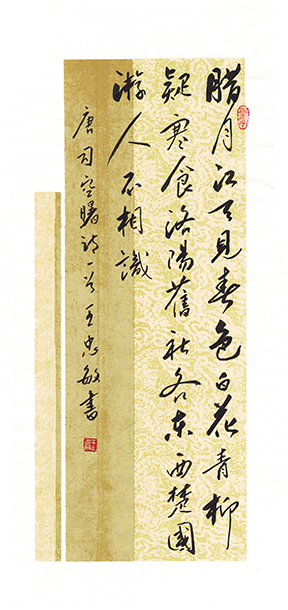 腊月江天見春色白花青柳
疑寒食洛陽舊社各東西楚國
游人不相識
唐司空曙詩一首王忠敏書